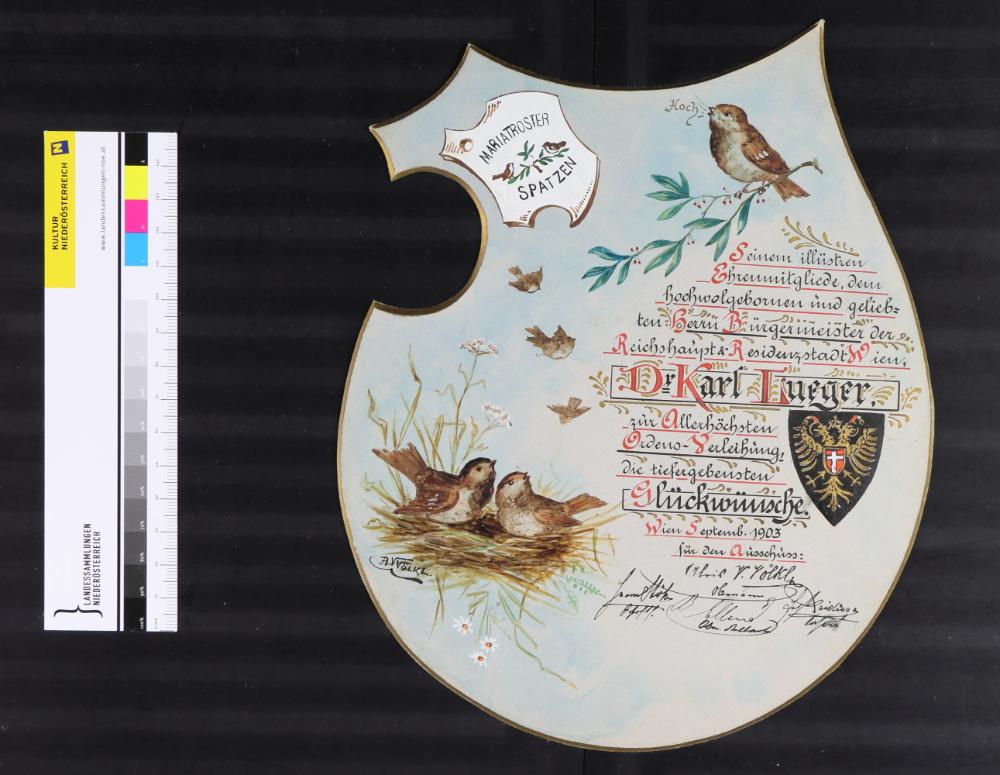 KULTUR
NIEDERÖSTERREICH
N
www.landessammlungen-noe.at
LANDESSAMMLUNGEN
NIEDERÖSTERREICH
MARIATROSTER
SPATZEN
Hoch
Seinem illüstren
Ehrenmitgliede, dem
hochwolgebornen und gelieb-
ten Herrn Bürgermeister der
Reichshaupt & Residenzstadt Wien,
Dr Karl Lueger.
zür Allerhöchsten
Ordens-Verleihüng,
die tiefergebensten
Glückwünsche.
Wien Septemb. 1903
für den Aüsschüss:
V. Völkl
Obmann
A. VÖLKL.